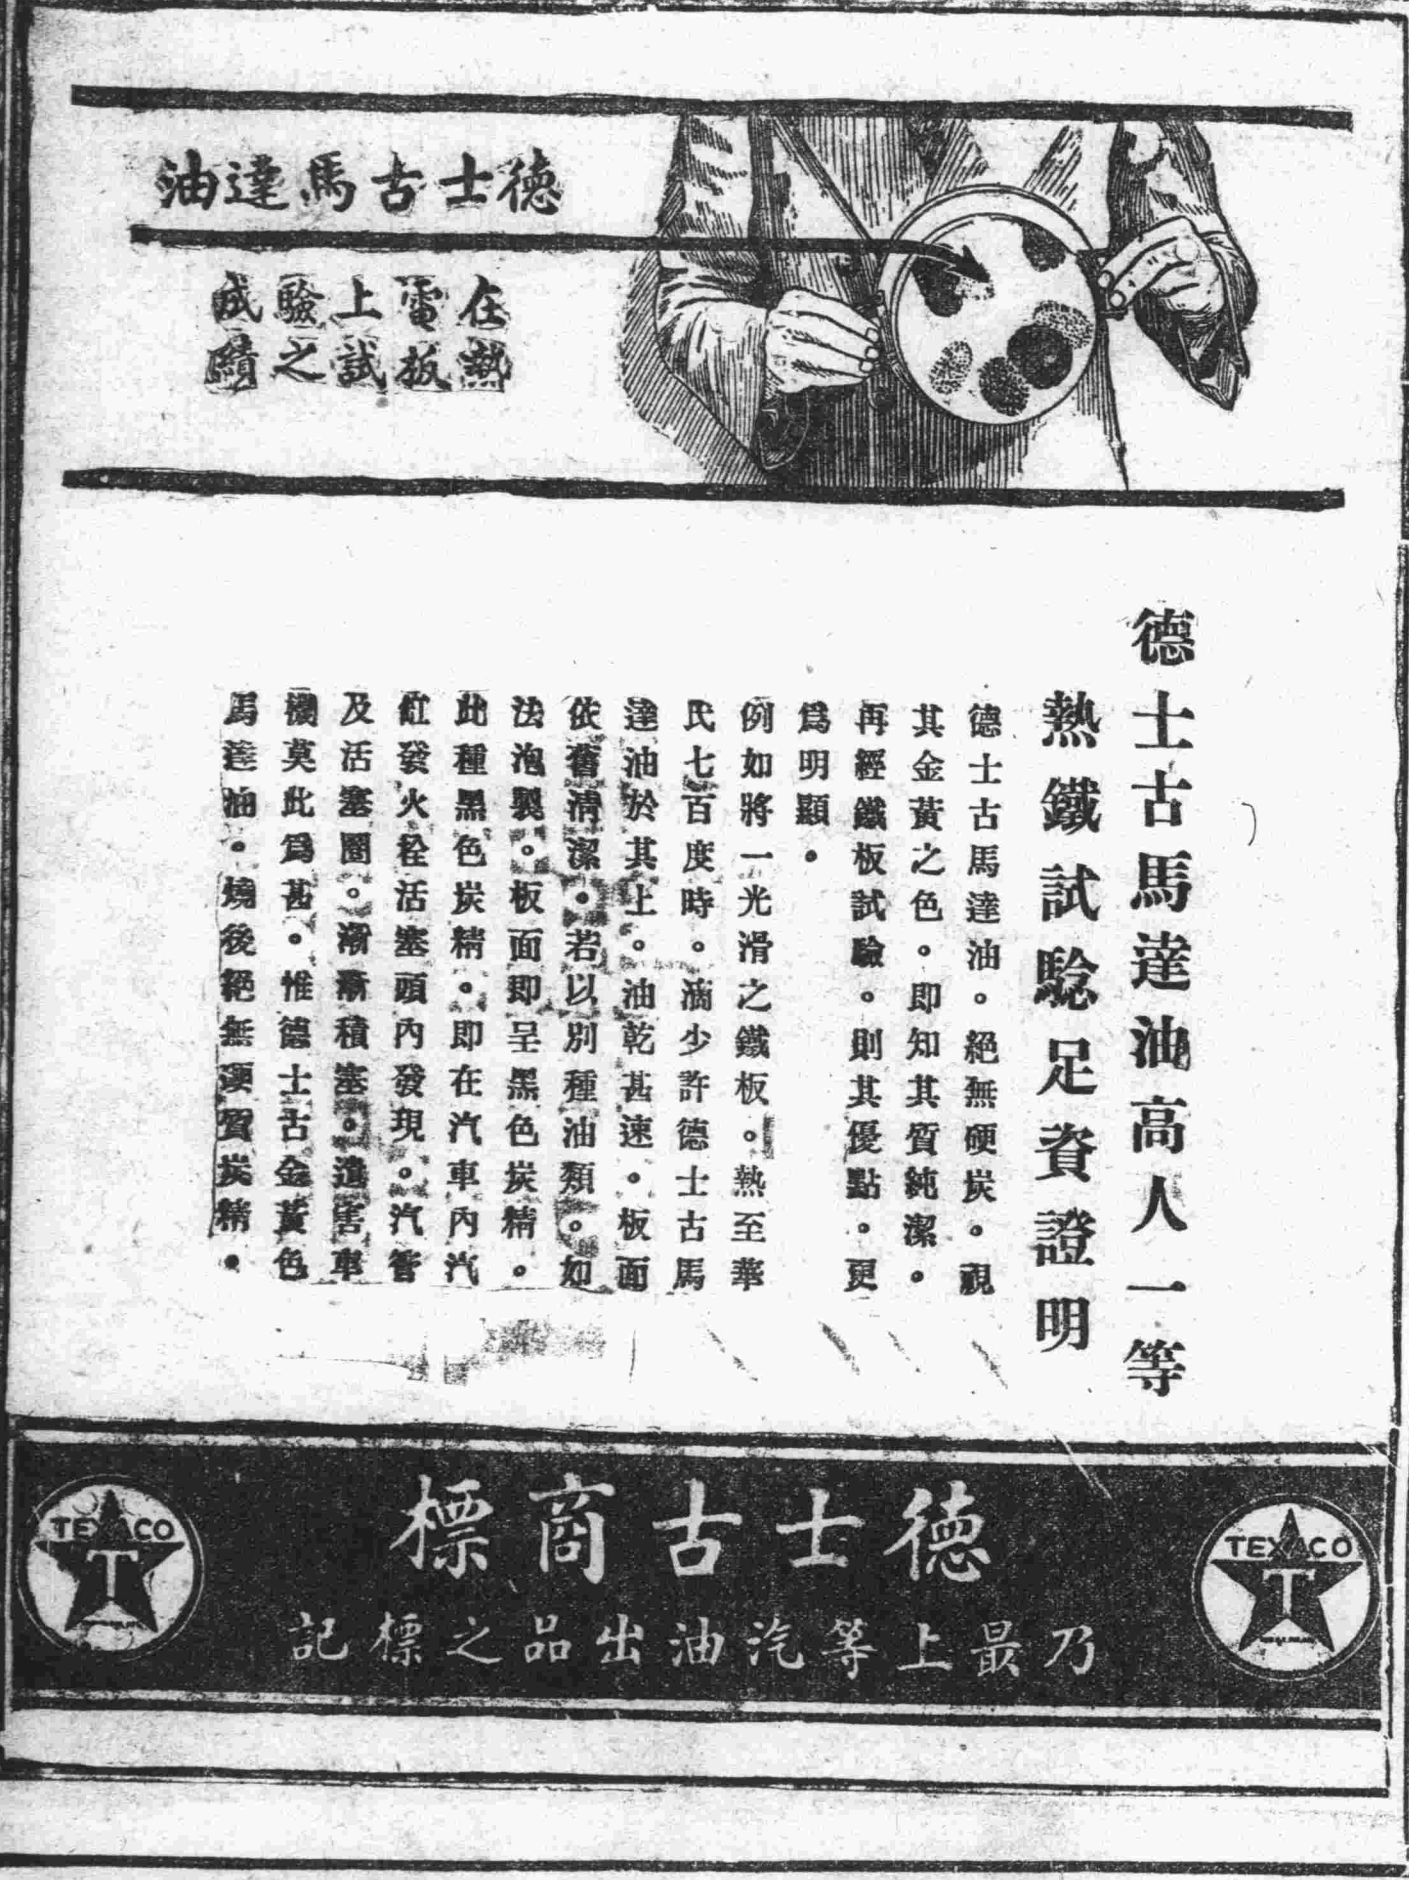 德士古馬達油
在熱
電板
上試
驗之
成績
德士古馬達油高人一等
熱鐵試騐足資證明
德士古馬達油。絕無硬炭。視
其金黃之色。即知其質純潔。
再經鐵板試驗。則其優點。更
爲明顯。
例如將一光滑之鐵板。熱至華
氏七百度時。滴少許德士古馬
達油於其上。油乾甚速。板面
依舊清潔。若以別種油類。如
法泡製。板面即呈黑色炭精。
此種黑色炭精。即在汽車內汽
缸發火栓活塞頭內發現。汽管
及活塞圈。漸漸積塞。遺害車
機莫此爲甚。惟德士古金黃色
馬達油。燒後絕無硬質炭精。
TEXACO
T
德士古商標
乃最上等汽油出品之標記
TEXACO
T